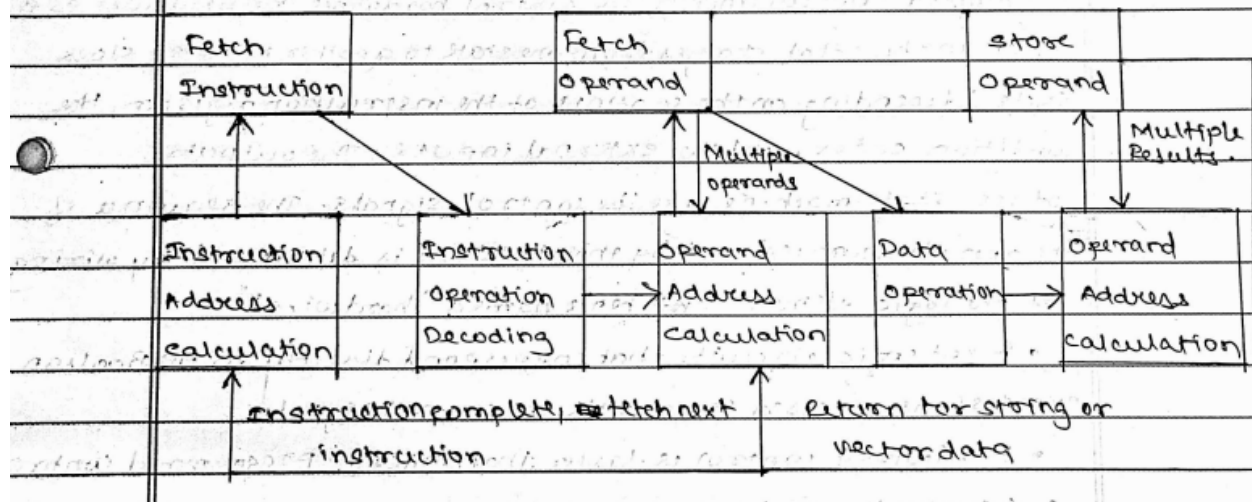 Fetch
Instruction
Fetch
Operand
Store
Operand
Multiple
operands
Multiple
Results.
Instruction
Address
Calculation
Instruction
Operation
Decoding
Operand
Address
Calculation
Data
Operation
Operand
Address
Calculation
Instruction complete, fetch next
instruction
Return for string or
vector data